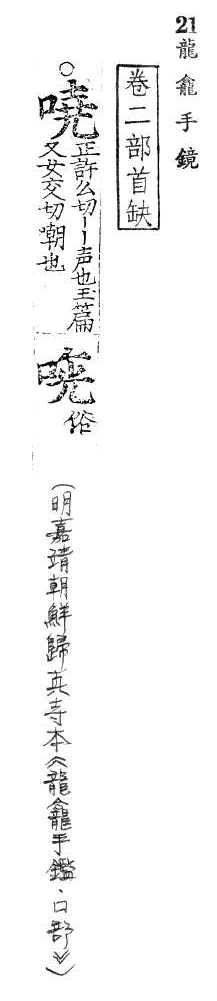 21龍龕手鏡
卷二部首缺
○嘵正許么切丨声也玉篇
又女交切嘲也
哓俗
(明嘉靖朝鮮歸真寺本《龍龕手鑑·口部》)